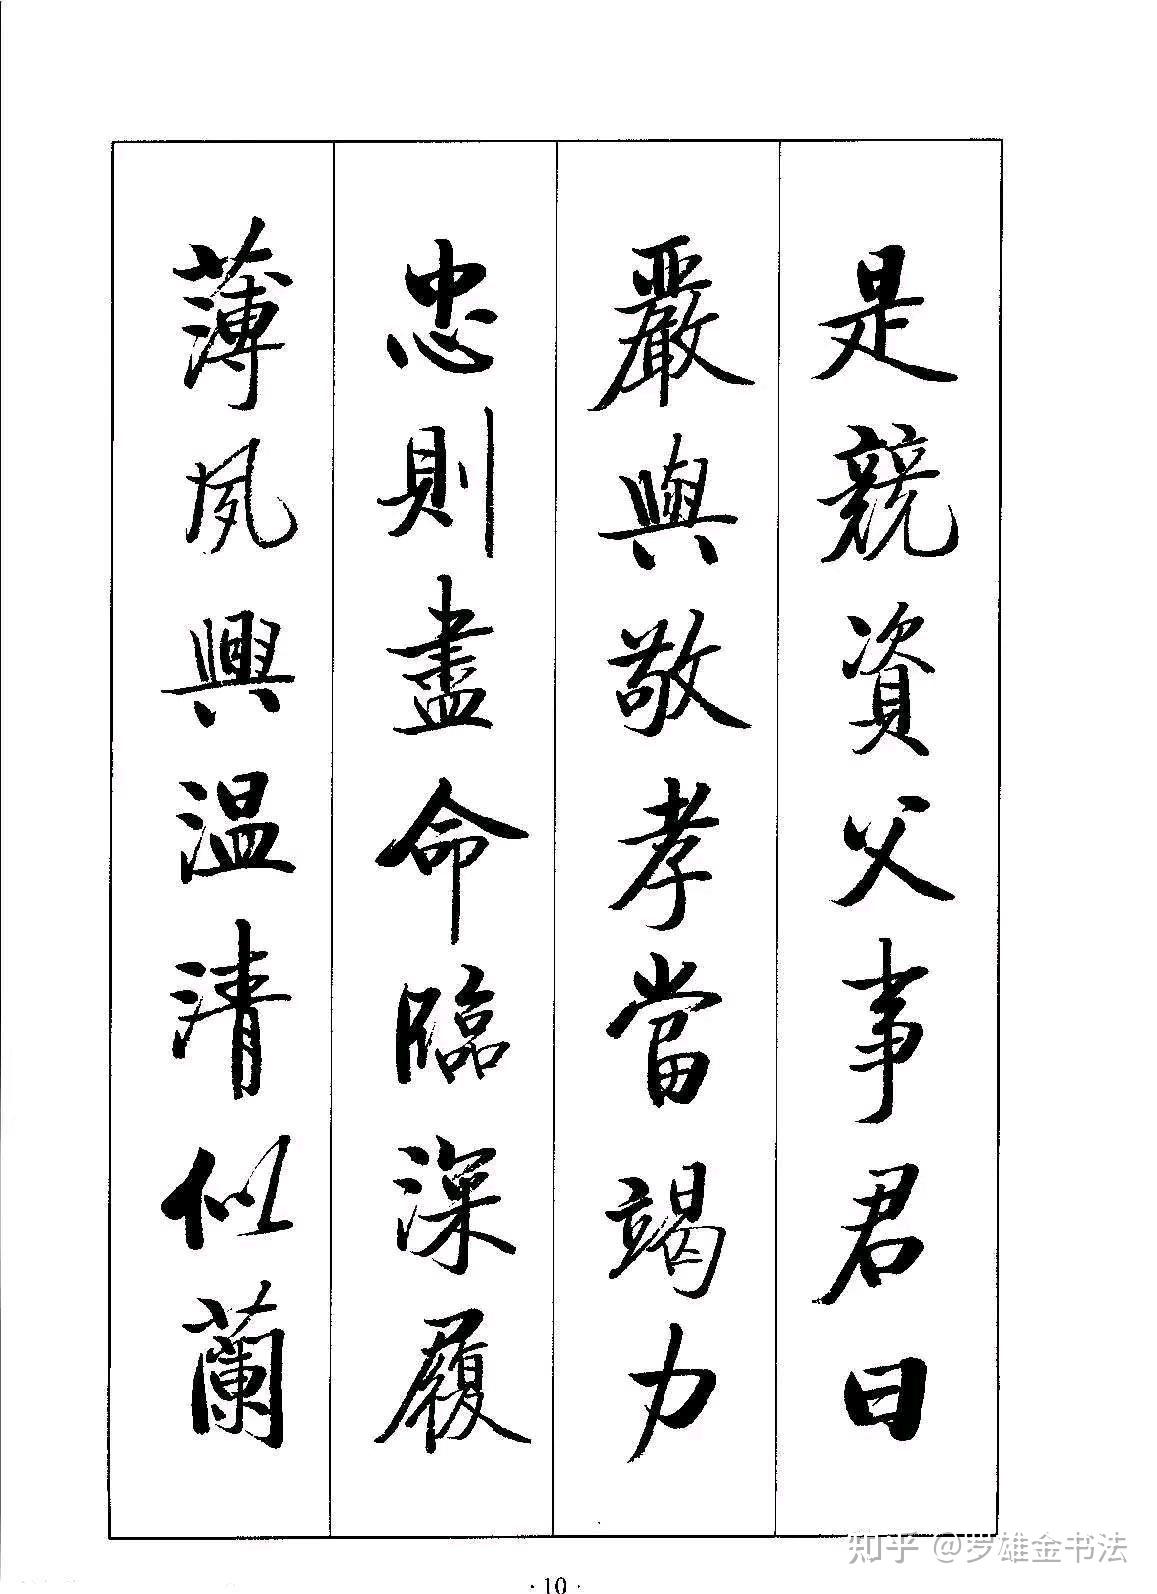 是競資父事君曰
嚴與敬孝當竭力
忠則盡命臨深履
薄夙興温清似蘭
· 10 ·
知乎 @罗雄金书法